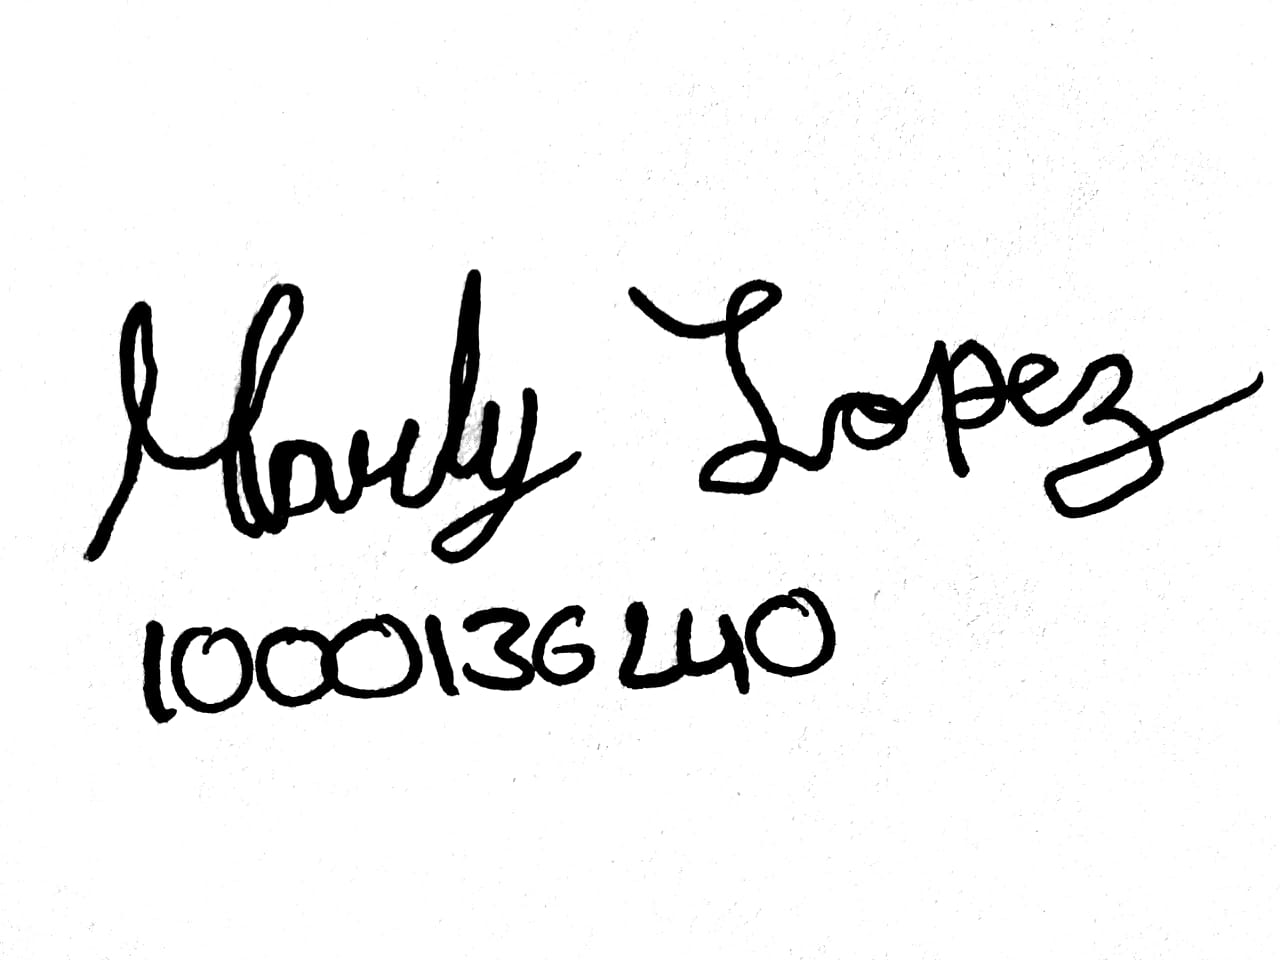 Marly Lopez
1000136240